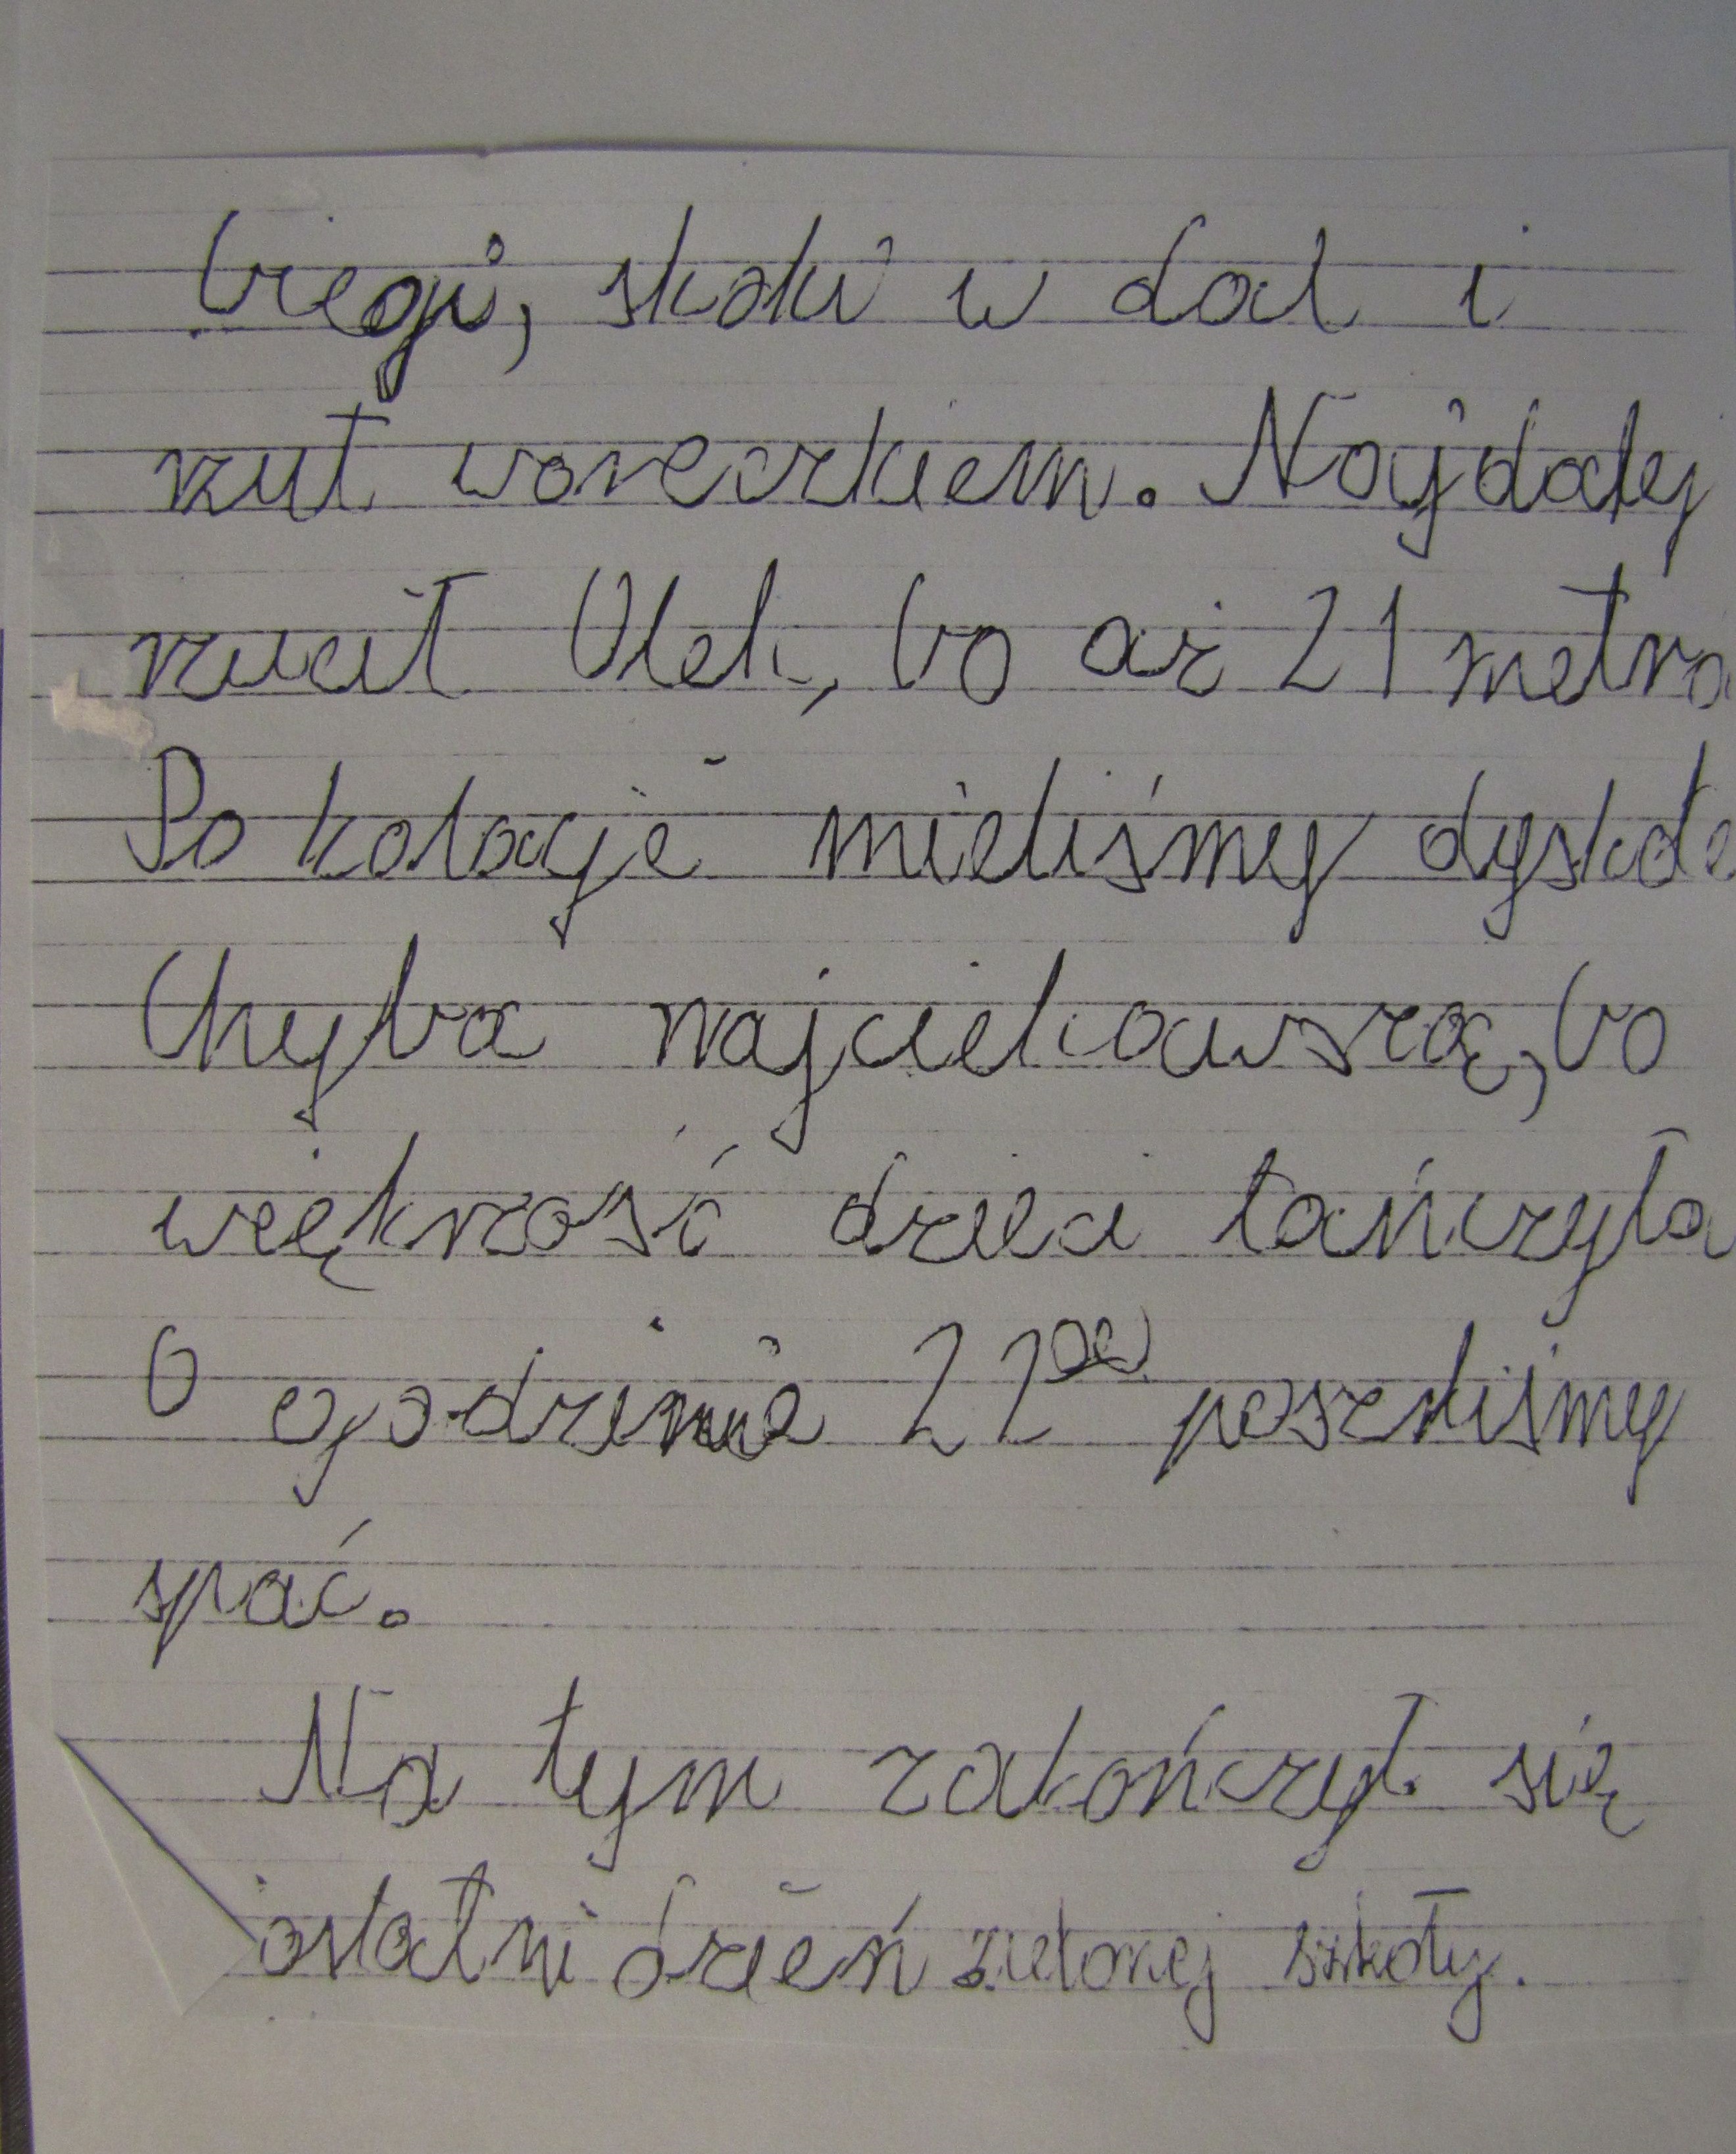 biegi, skoki w dal i
rzut woreczkiem. Najdalej
rzucił Olek, bo aż 21 metra
Po kolacji mieliśmy dyskote
Chyba najciekawszą, bo
większość dzieci tańczyła
O godzinie 22⁰⁰ poszliśmy
spać.
Na tym zakończył się
ostatni dzień zielonej szkoły.